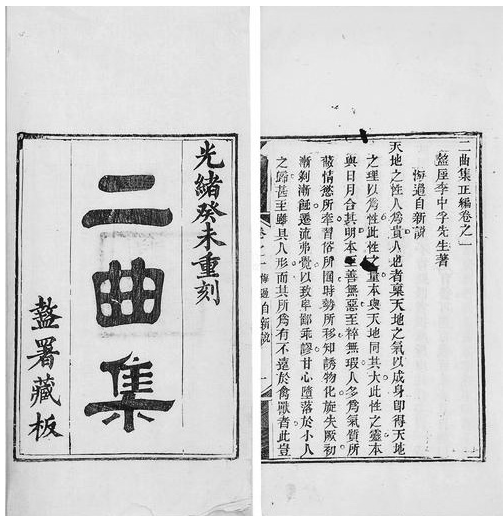 光緒癸未重刻
二曲集
盩署藏板
二曲集正編卷之一
盩厔李中孚先生著
悔過自新說
天地之性人為貴人也者稟天地之氣以成身即得天地
之理以為性此性之量本與天地同其大此性之靈本
與日月合其明本至善無惡至粹無瑕人多為氣質所
蔽情慾所牽習俗所囿時勢所移知誘物化旋失厥初
漸剝漸蝕遷流弗覺以致卑鄙乖謬甘心墮落於小人
之歸甚至雖具人形而其所為有不遠於禽獸者此豈
卷之一 悔過自新說 一